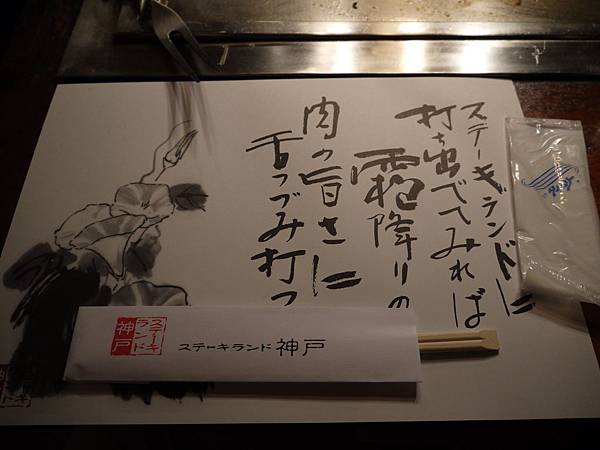 ステーキランドに
打ち出でてみれば
霜降りの
肉の旨さに
舌つづみ打つ
ステーキ
ランド
神戸
ステーキランド 神戸